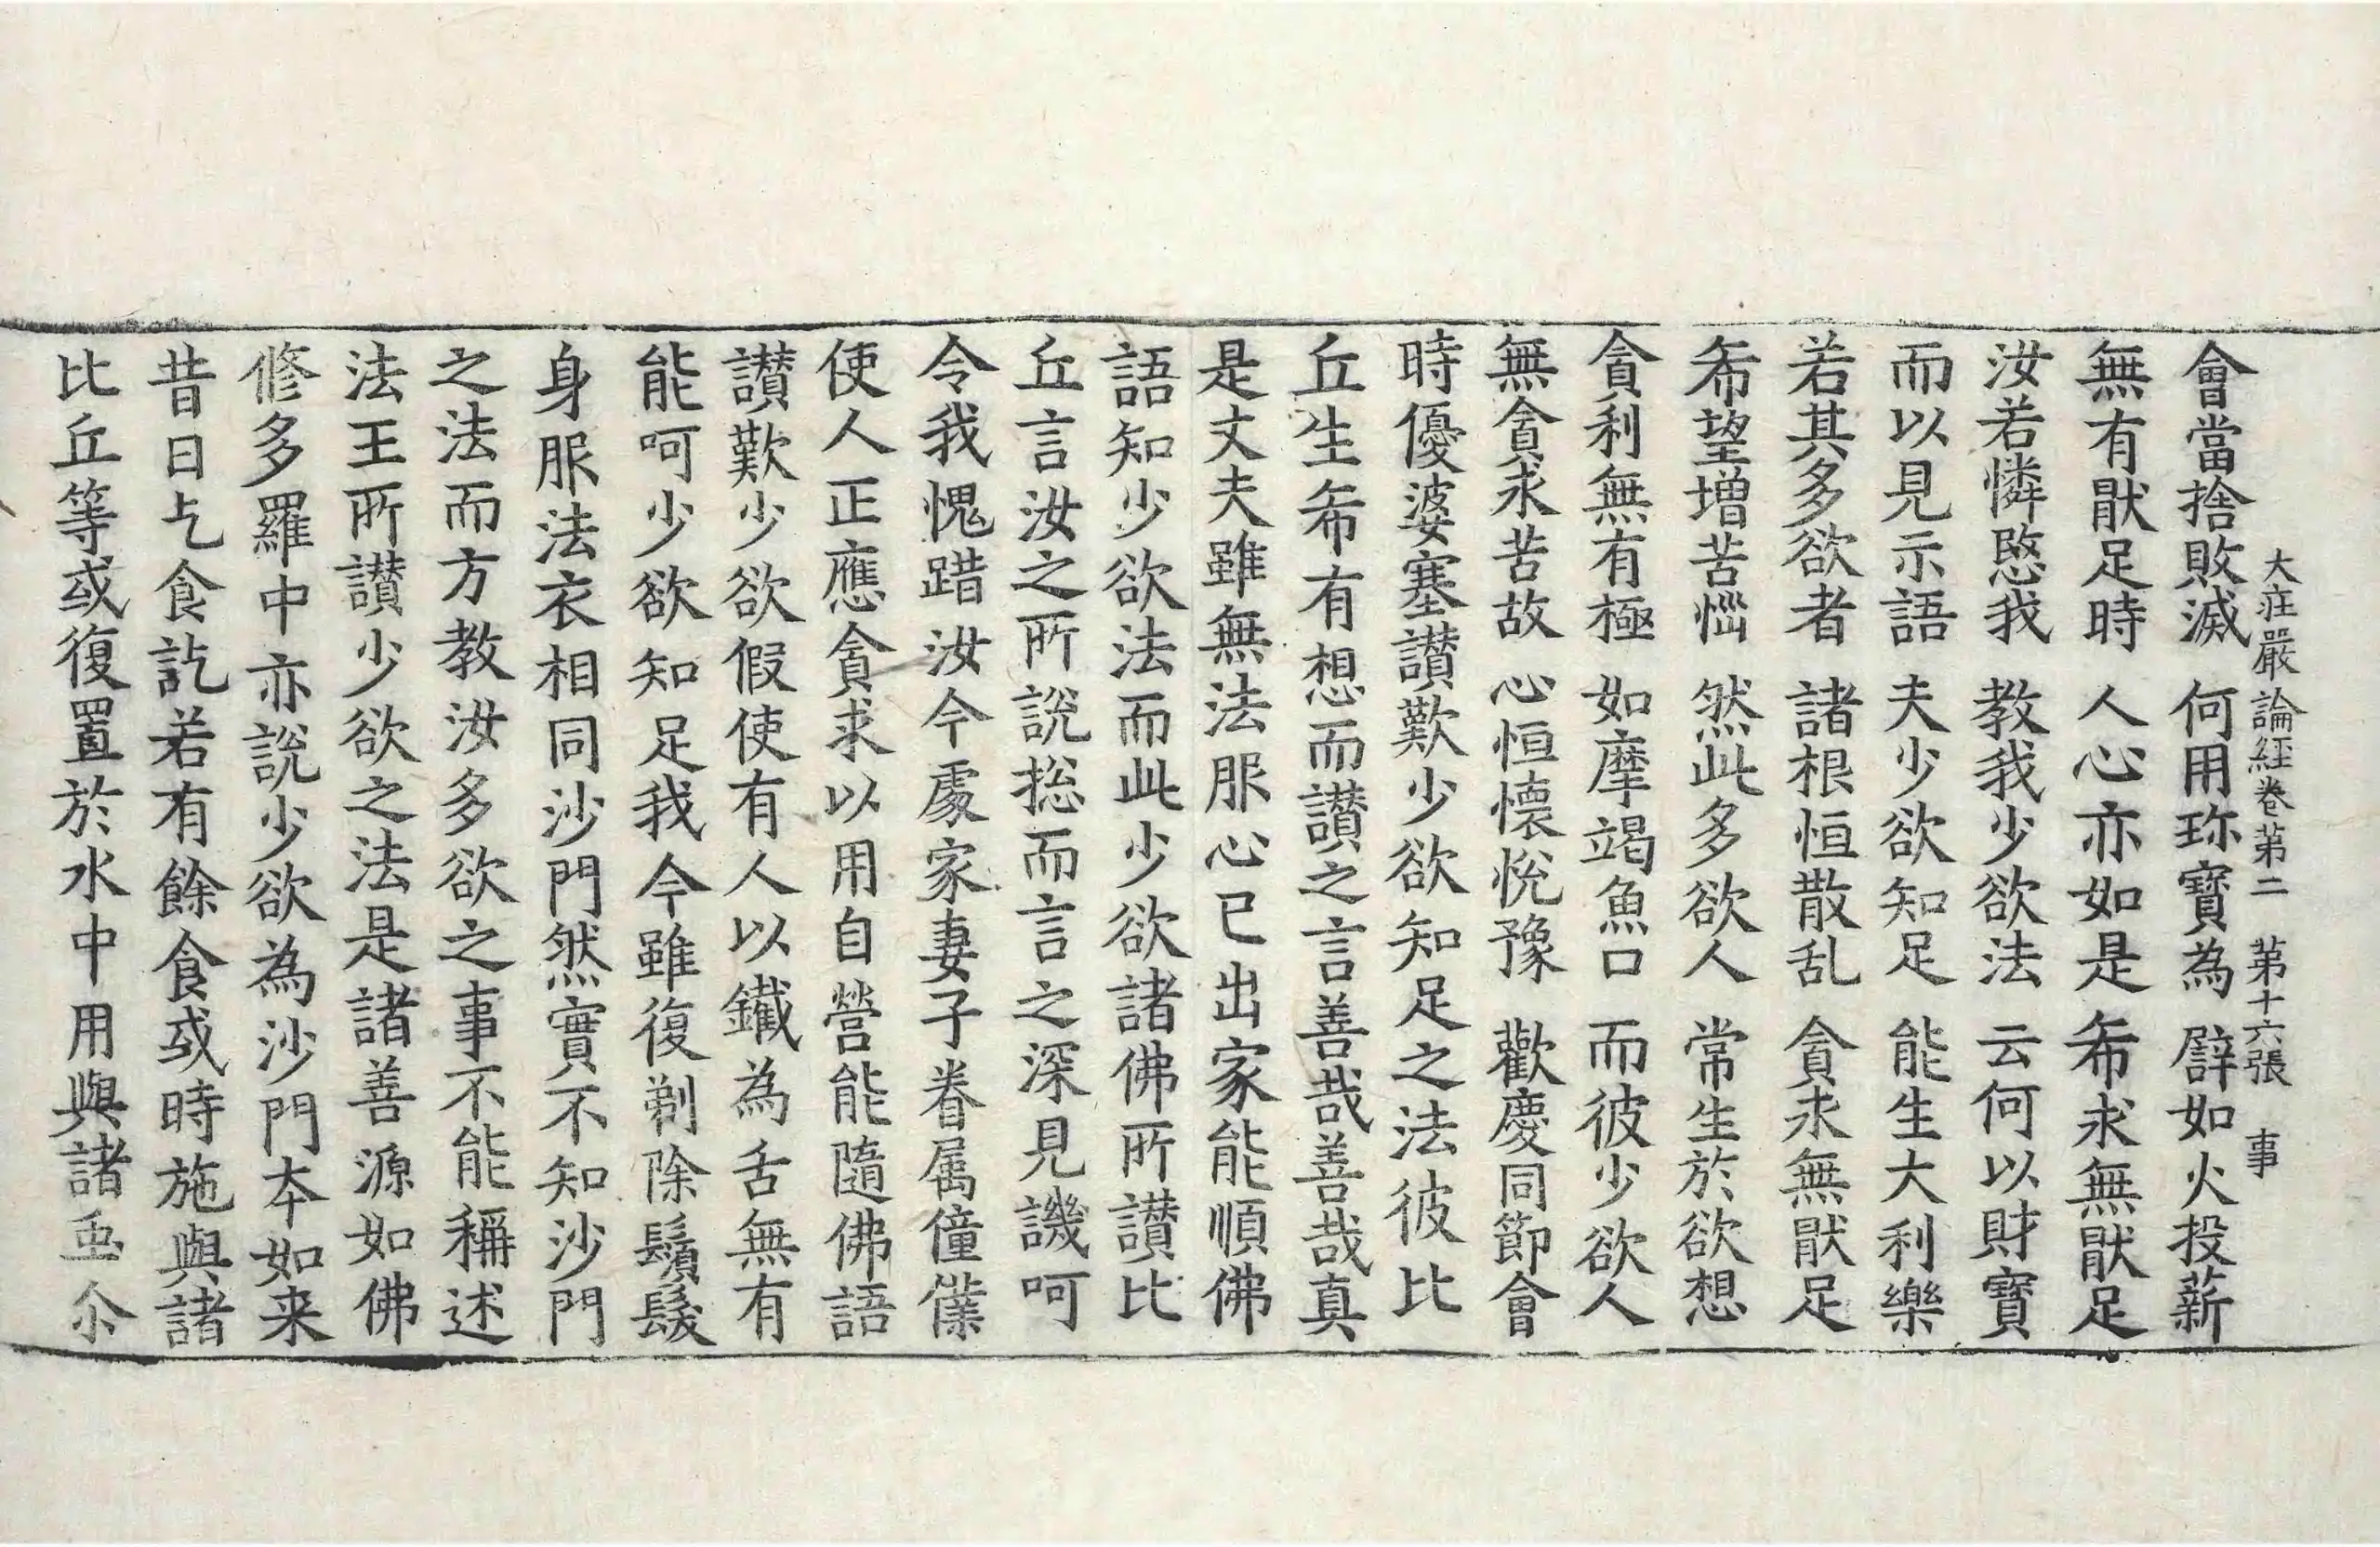 大莊嚴論經卷第二 第十六張 事
會當捨敗滅 何用珎寶為 譬如火投薪
無有猒足時 人心亦如是 希求無猒足
汝若憐愍我 教我少欲法 云何以財寶
而以見示語 夫少欲知足 能生大利樂
若其多欲者 諸根恒散乱 貪求無猒足
希望增苦惱 然此多欲人 常生於欲想
貪利無有極 如摩竭魚口 而彼少欲人
無貪求苦故 心恒懷悅豫 歡慶同節會
時優婆塞讃歎少欲知足之法彼比
丘生希有想而讃之言善哉善哉真
是丈夫雖無法服心已出家能順佛
語知少欲法而此少欲諸佛所讃比
丘言汝之所說揔而言之深見譏呵
令我愧踖汝今處家妻子眷属僮僕
使人正應貪求以用自營能隨佛語
讃歎少欲假使有人以鐵為舌無有
能呵少欲知足我今雖復剃除鬚髮
身服法衣相同沙門然實不知沙門
之法而方教汝多欲之事不能稱述
法王所讃少欲之法是諸善源如佛
修多羅中亦說少欲為沙門夲如来
昔日乞食訖若有餘食或時施與諸
比丘等或復置於水中用與諸䖝尒